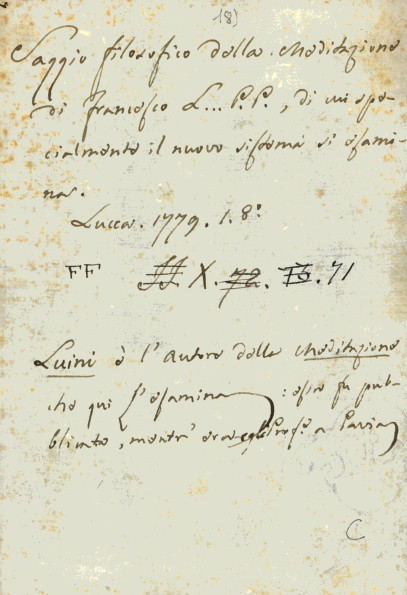 18)
Saggio filosofico della Meditazione
di Francesco L... P. P., di cui spe-
cialmente il nuovo sistema si esami-
na.
Lucca. 1779. 1. 8º
FF X. 71
Luini è l'autore della Meditazione
che qui s'esamina: essa fu pub-
blicata, mentr' era egli Profe. a Pavia
C